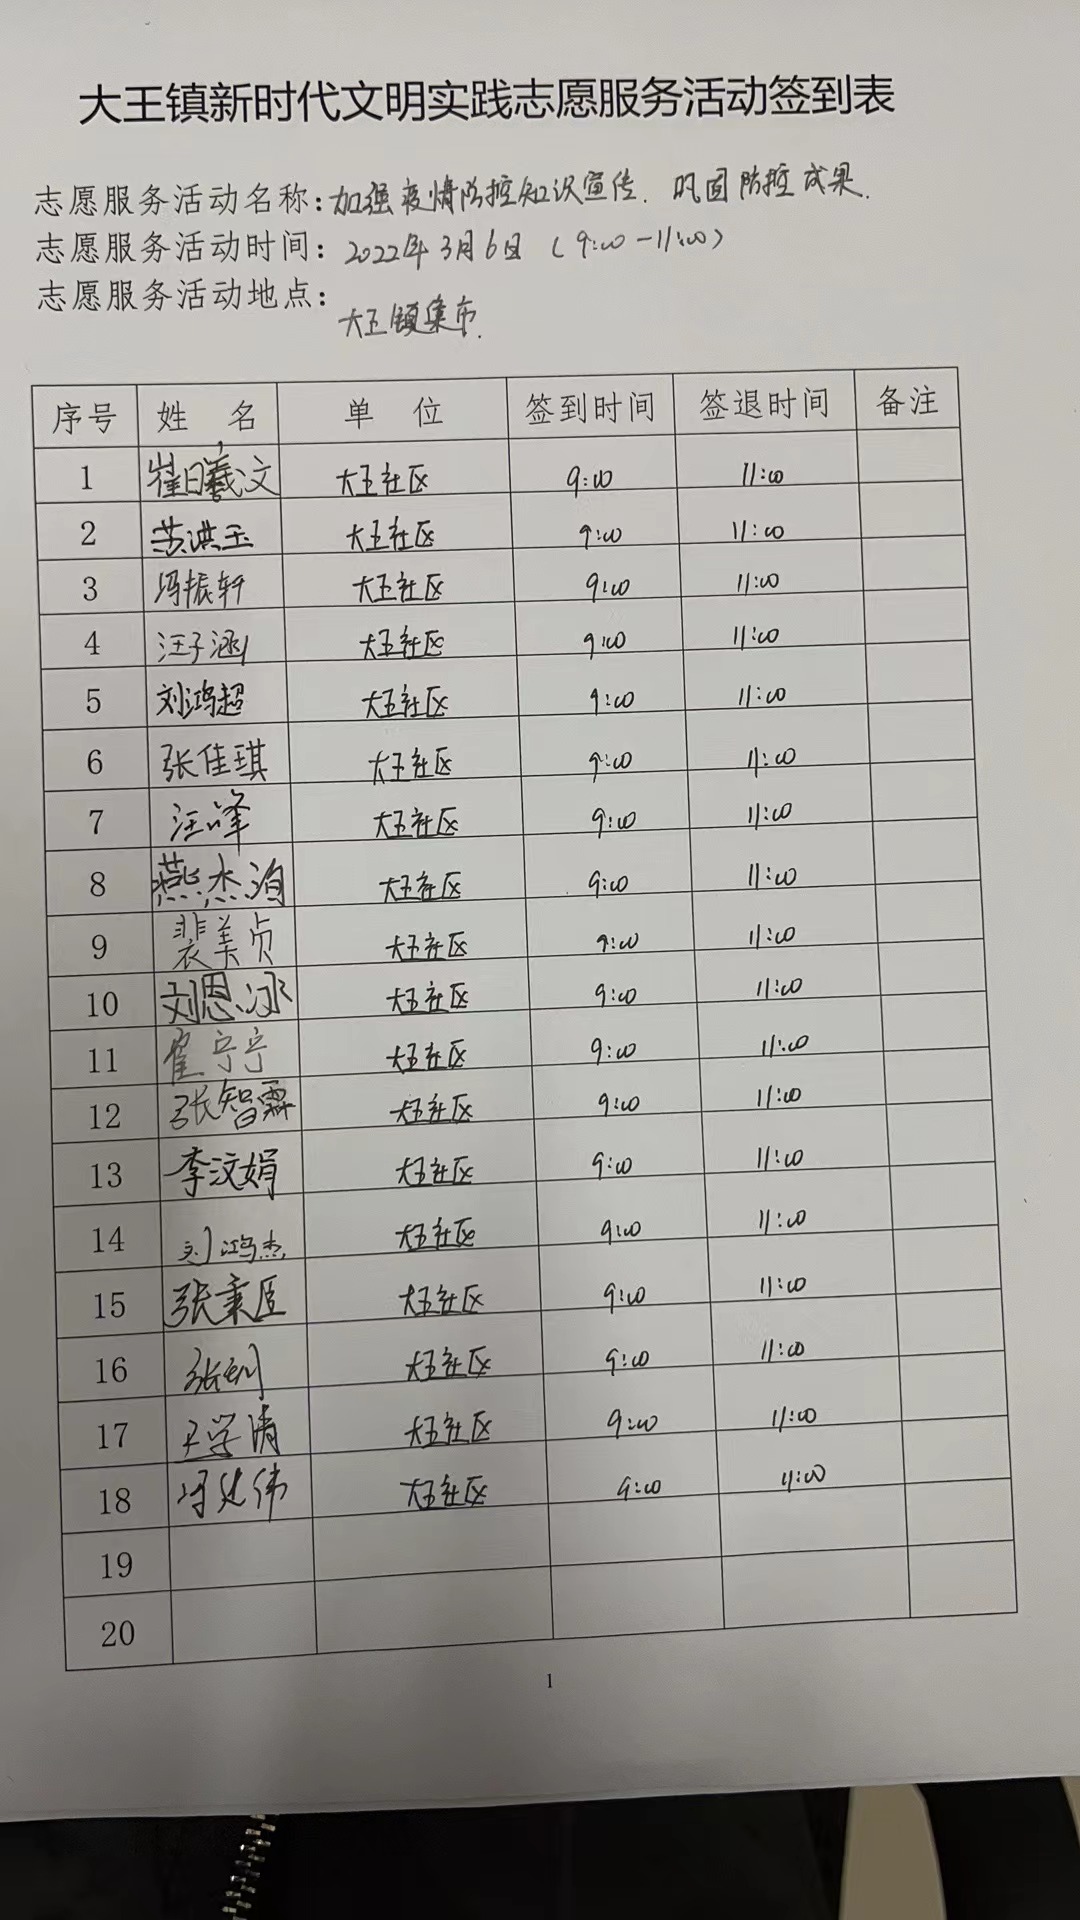 大王镇新时代文明实践志愿服务活动签到表
志愿服务活动名称:加强疫情防控知识宣传、巩固防控成果.
志愿服务活动时间: 2022年3月6日 (9:00-11:00)
志愿服务活动地点: 大王镇集市.
序号 姓 名 单 位 签到时间 签退时间 备注
1 崔曦文 大王社区 9:00 11:00
2 苏洪玉 大王社区 9:00 11:00
3 冯振轩 大王社区 9:00 11:00
4 汪子涵 大王社区 9:00 11:00
5 刘鸿超 大王社区 9:00 11:00
6 张佳琪 大王社区 9:00 11:00
7 汪峰 大王社区 9:00 11:00
8 燕杰洵 大王社区 9:00 11:00
9 裴美贞 大王社区 9:00 11:00
10 刘恩冰 大王社区 9:00 11:00
11 宁宁 大王社区 9:00 11:00
12 张智霖 大王社区 9:00 11:00
13 李汶娟 大王社区 9:00 11:00
14 刘鸿杰 大王社区 9:00 11:00
15 张秉臣 大王社区 9:00 11:00
16 张钊 大王社区 9:00 11:00
17 王学清 大王社区 9:00 11:00
18 伟 大王社区 9:00 11:00
19
20
1